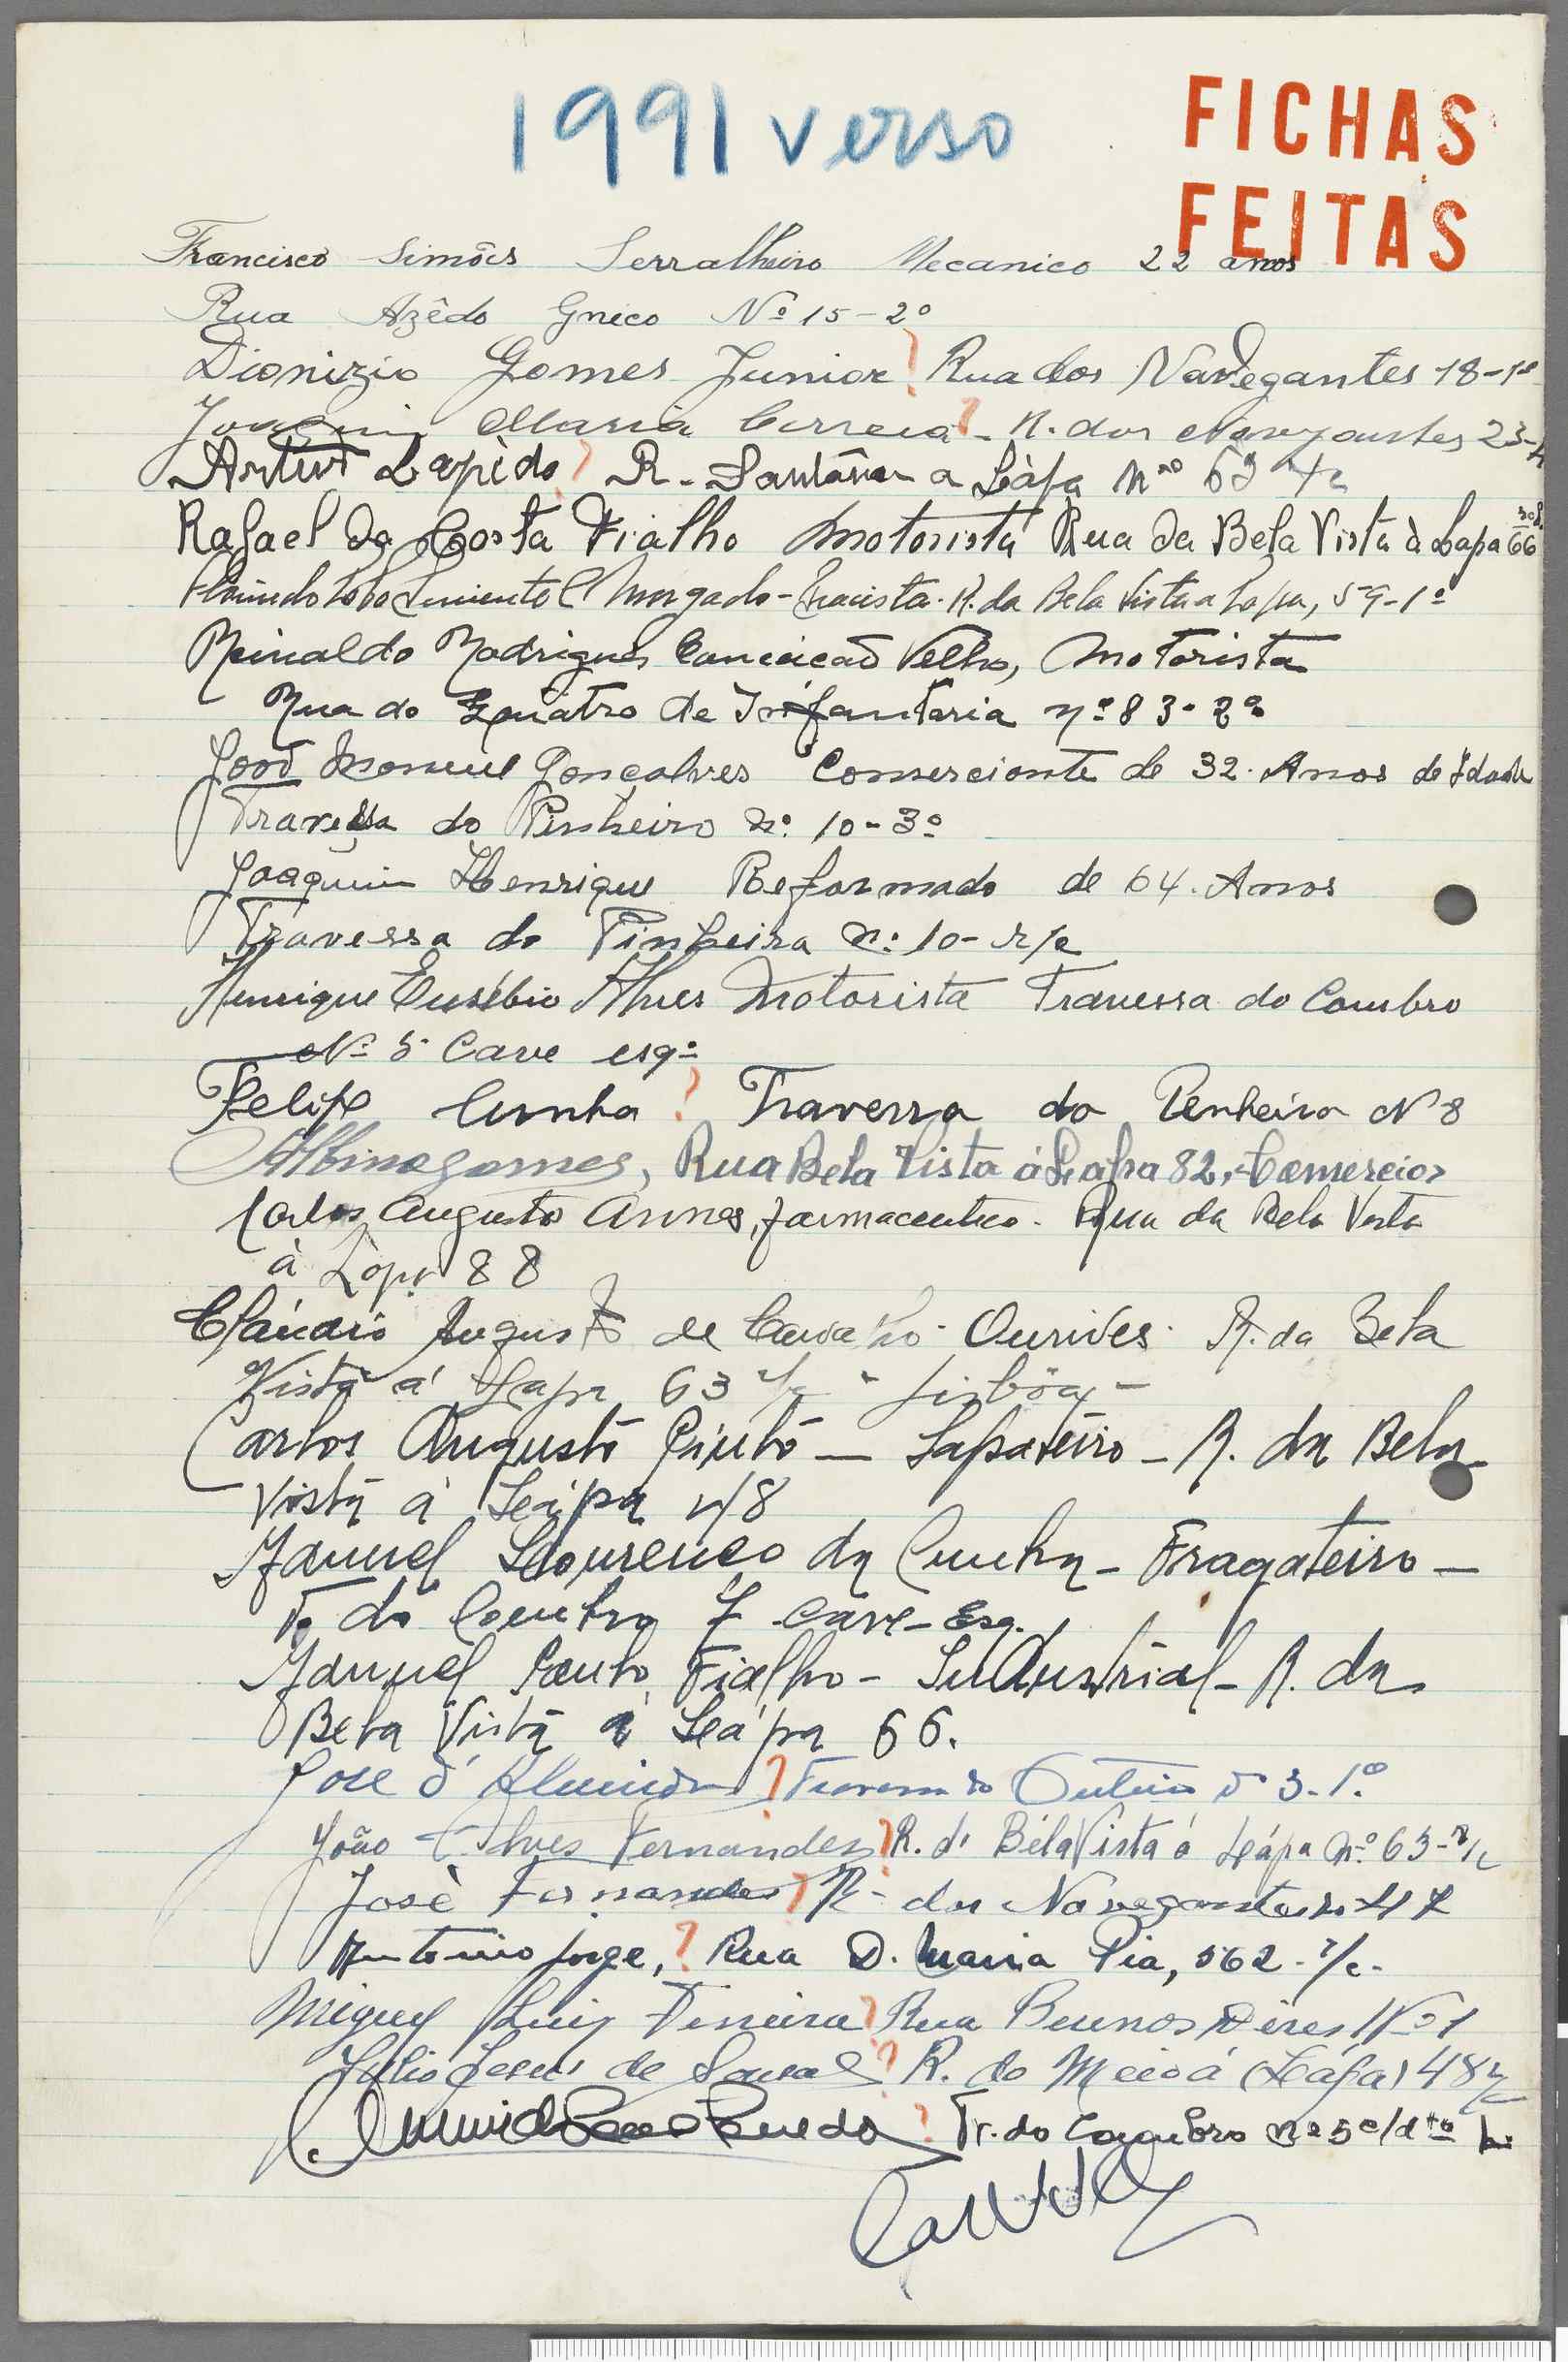 1991 verso
FICHAS
FEITAS
Francisco Simões Serralheiro Mecanico 22 anos
Rua Azêdo Gneco Nº 15-2º
Dionizio Gomes Junior ? Rua dos Navegantes 18-1º
Joaquim Maria Correia ? - R. dos Navegantes 23-
Artur Lapido ? R. Santana a Lápa nº 62
Rafael da Costa Fialho Motorista Rua da Bela Vista à Lapa 66
Morgado - R. da Bela Vista a Lapa, 59-1º
Reinaldo Rodrigues Conceicão Velho, Motorista
Rua do Quatro de Infantaria nº 83-2º
João Manuel Gonçalves Comerciante de 32. Anos de Idade
Travessa do Pinheiro nº 10-3º
Joaquim Henrique Reformado de 64. Anos
Travessa do Pinheiro nº 10-r/c
Henrique Eusébio Alves Motorista Travessa do Combro
Nº 5 Cave esqº
Felipe Cunha ? Travessa do Penheiro Nº 8
Albino Gomes, Rua Bela Vista á Lapa 82, Comercio
Carlos Augusto Annes, farmaceutico. Rua da Bela Vista
à Lapa 88
Cláudio Augusto de Carvalho - Ourives. R. da Bela
Vista á Lapa 63 r/c - Lisbôa -
Carlos Augusto Pinto - Sapateiro - R. da Bela
Vista á Lápa 48
Manuel Lourenço da Cunha - Fragateiro -
T. do Combro 7 cave - Esq.
Manuel Couto Fialho - Industrial - R. da
Bela Vista á Lápa 66.
Jose d'Almeida ? Travessa do Outeiro nº 3-1.º
João Alves Fernandes ? R. da Béla Vista á Lápa nº 63-r/c
José Fernandes ? R. dos Navegantes
Antonio Jorge, ? Rua D. Maria Pia, 562-r/c.
Miguel Luiz Ferreira ? Rua Buenos Aires Nº 1
Julio Jesus de Sousa ? R. do Meio á Lápa 48 r/c
? Tr. do Combro nº 5 c/dto